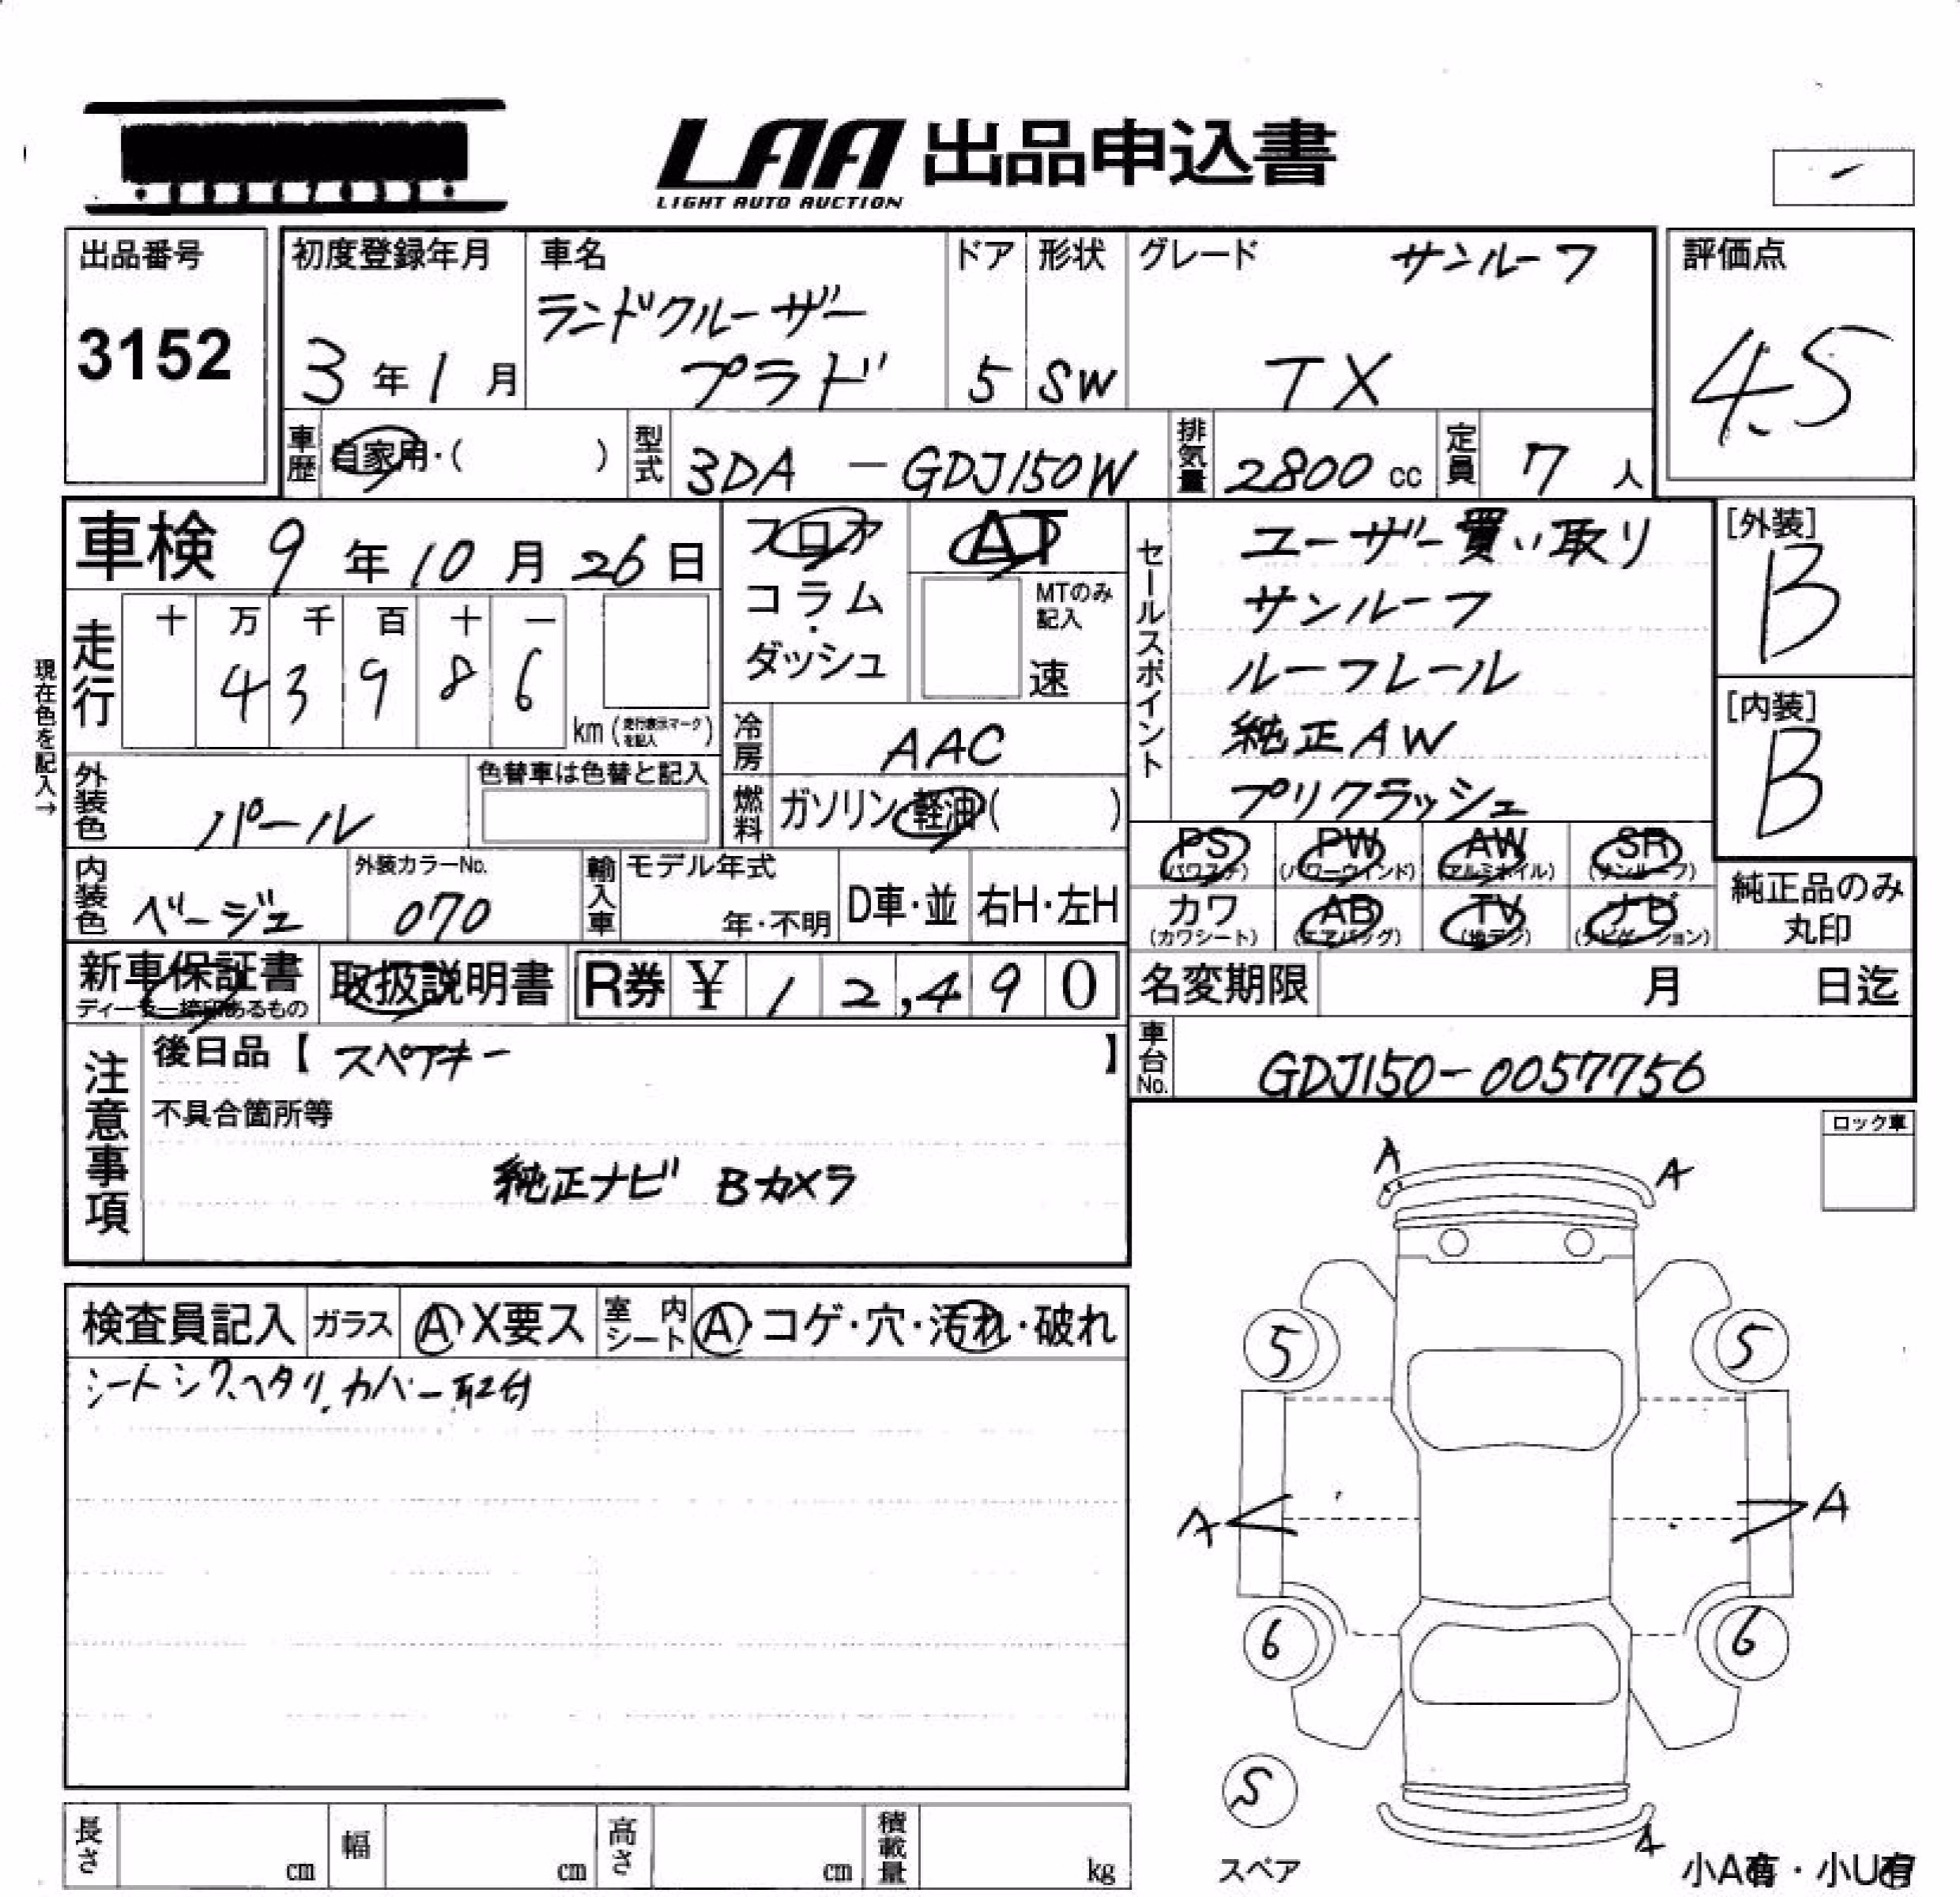 LAA 出品申込書
LIGHT AUTO AUCTION
出品番号
3152
初度登録年月
3年1月
車名
ランドクルーザー
プラド
ドア
5
形状
SW
グレード
サンルーフ
TX
評価点
4.5
車歴
自家用・( )
型式
3DA - GDJ150W
排気量
2800 cc
定員
7 人
車検 9年10月26日
現在色を記入→
走行
十 万 千 百 十 一
4 3 9 8 6
km (走行表示マークを記入)
フロア
コラム
・
ダッシュ
AT
MTのみ記入
速
冷房
AAC
燃料
ガソリン・軽油( )
外装色
パール
色替車は色替と記入
内装色
ベージュ
外装カラーNo.
070
輸入車
モデル年式
年・不明
D車・並
右H・左H
セールスポイント
ユーザー買い取り
サンルーフ
ルーフレール
純正AW
プリクラッシュ
[外装]
B
[内装]
B
PS (パワステ)
PW (パワーウインド)
AW (アルミホイル)
SR (サンルーフ)
カワ (カワシート)
AB (エアバッグ)
TV (地デジ)
ナビ (ナビゲーション)
純正品のみ
丸印
新車保証書
ディーラー捺印あるもの
取扱説明書
R券 ¥ 12,490
名変期限 月 日迄
車台No.
GDJ150-0057756
注意事項
後日品【 スペアキー 】
不具合箇所等
純正ナビ Bカメラ
検査員記入
ガラス
A・X要ス
室内シート
A・コゲ・穴・汚れ・破れ
シートシワ、ヘタリ、カバー取付
ロック車
A
A
5
5
A
A
6
6
S
スペア
A
小A有・小U有
長さ cm
幅 cm
高さ cm
積載量 kg